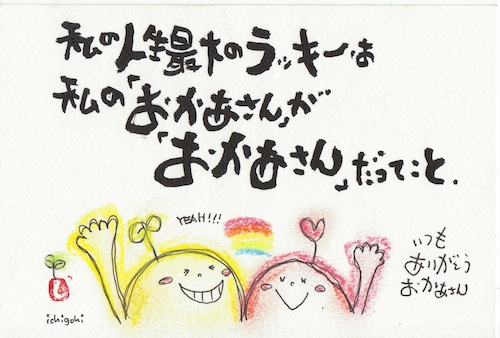 私の人生最大のラッキーは
私の「おかあさん」が
「おかあさん」だってこと.
YEAH!!!
いつも
ありがとう
おかあさん
ichigohi